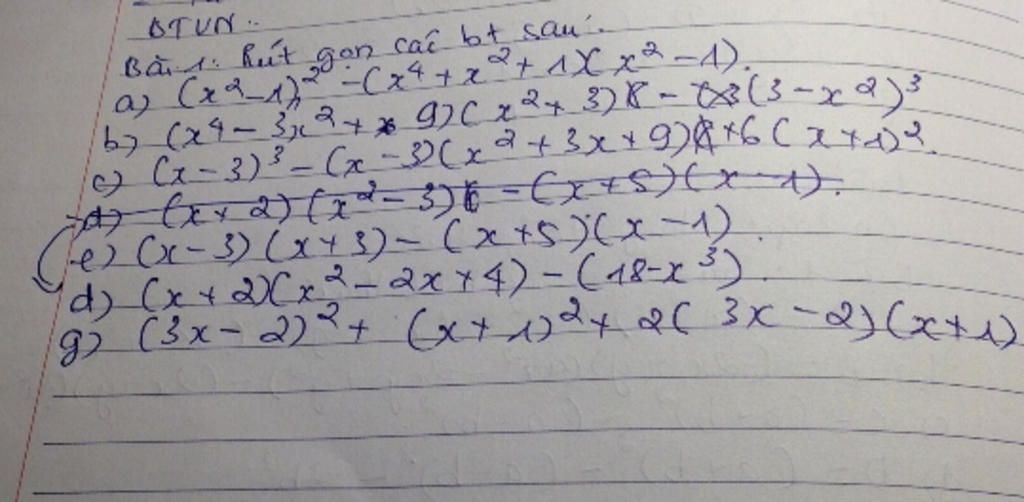 BTVN:
Bài 1: Rút gọn các bt sau:
a) (x²-1)² - (x⁴ + x² + 1)(x² - 1).
b) (x⁴ - 3x² + 9)(x² + 3) - (3 - x²)³
c) (x - 3)³ - (x - 3)(x² + 3x + 9) + 6(x + 1)².
d) (x + 2)(x² - 3) - (x + 5)(x - 1).
e) (x - 3)(x + 3) - (x + 5)(x - 1).
d) (x + 2)(x² - 2x + 4) - (18 - x³).
g) (3x - 2)² + (x + 1)² + 2(3x - 2)(x + 1)